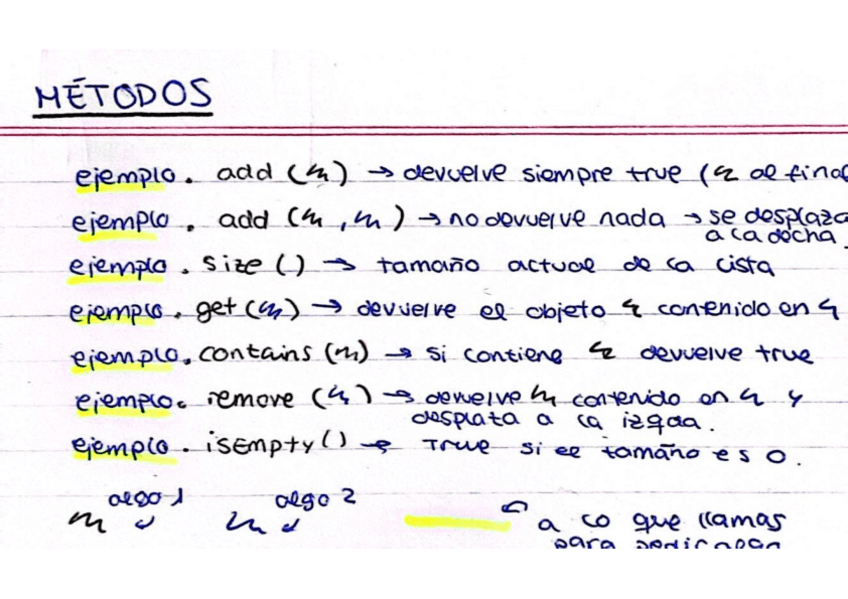 MÉTODOS
ejemplo. add (m) → devuelve siempre true ( al final
ejemplo. add (m, m) → no devuelve nada → se desplaza
a la dcha.
ejemplo. size () → tamaño actual de la lista
ejemplo. get (m) → devuelve el objeto contenido en
ejemplo. contains (m) → si contiene devuelve true
ejemplo. remove () → devuelve m contenido en y
desplata a la izqda.
ejemplo. isEmpty () → True si el tamaño es 0.
algo 1 algo 2
a lo que llamas
para